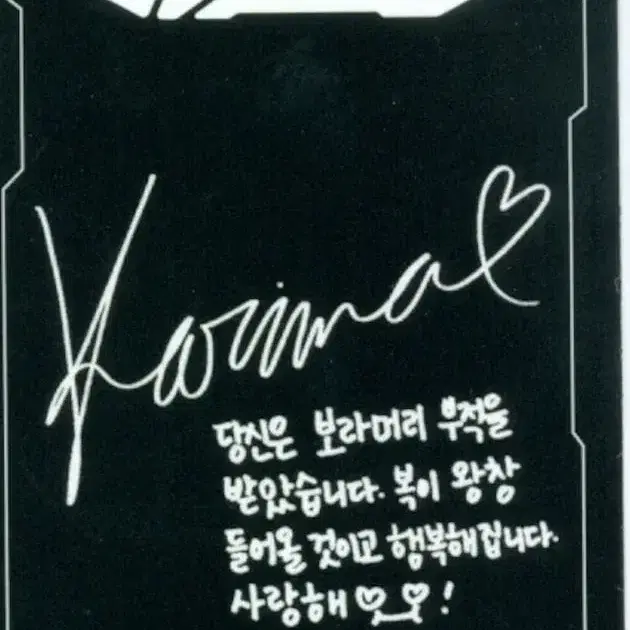 Karina♡
당신은 보라머리 부적을
받았습니다. 복이 왕창
들어올 것이고 행복해집니다.
사랑해♡♡!